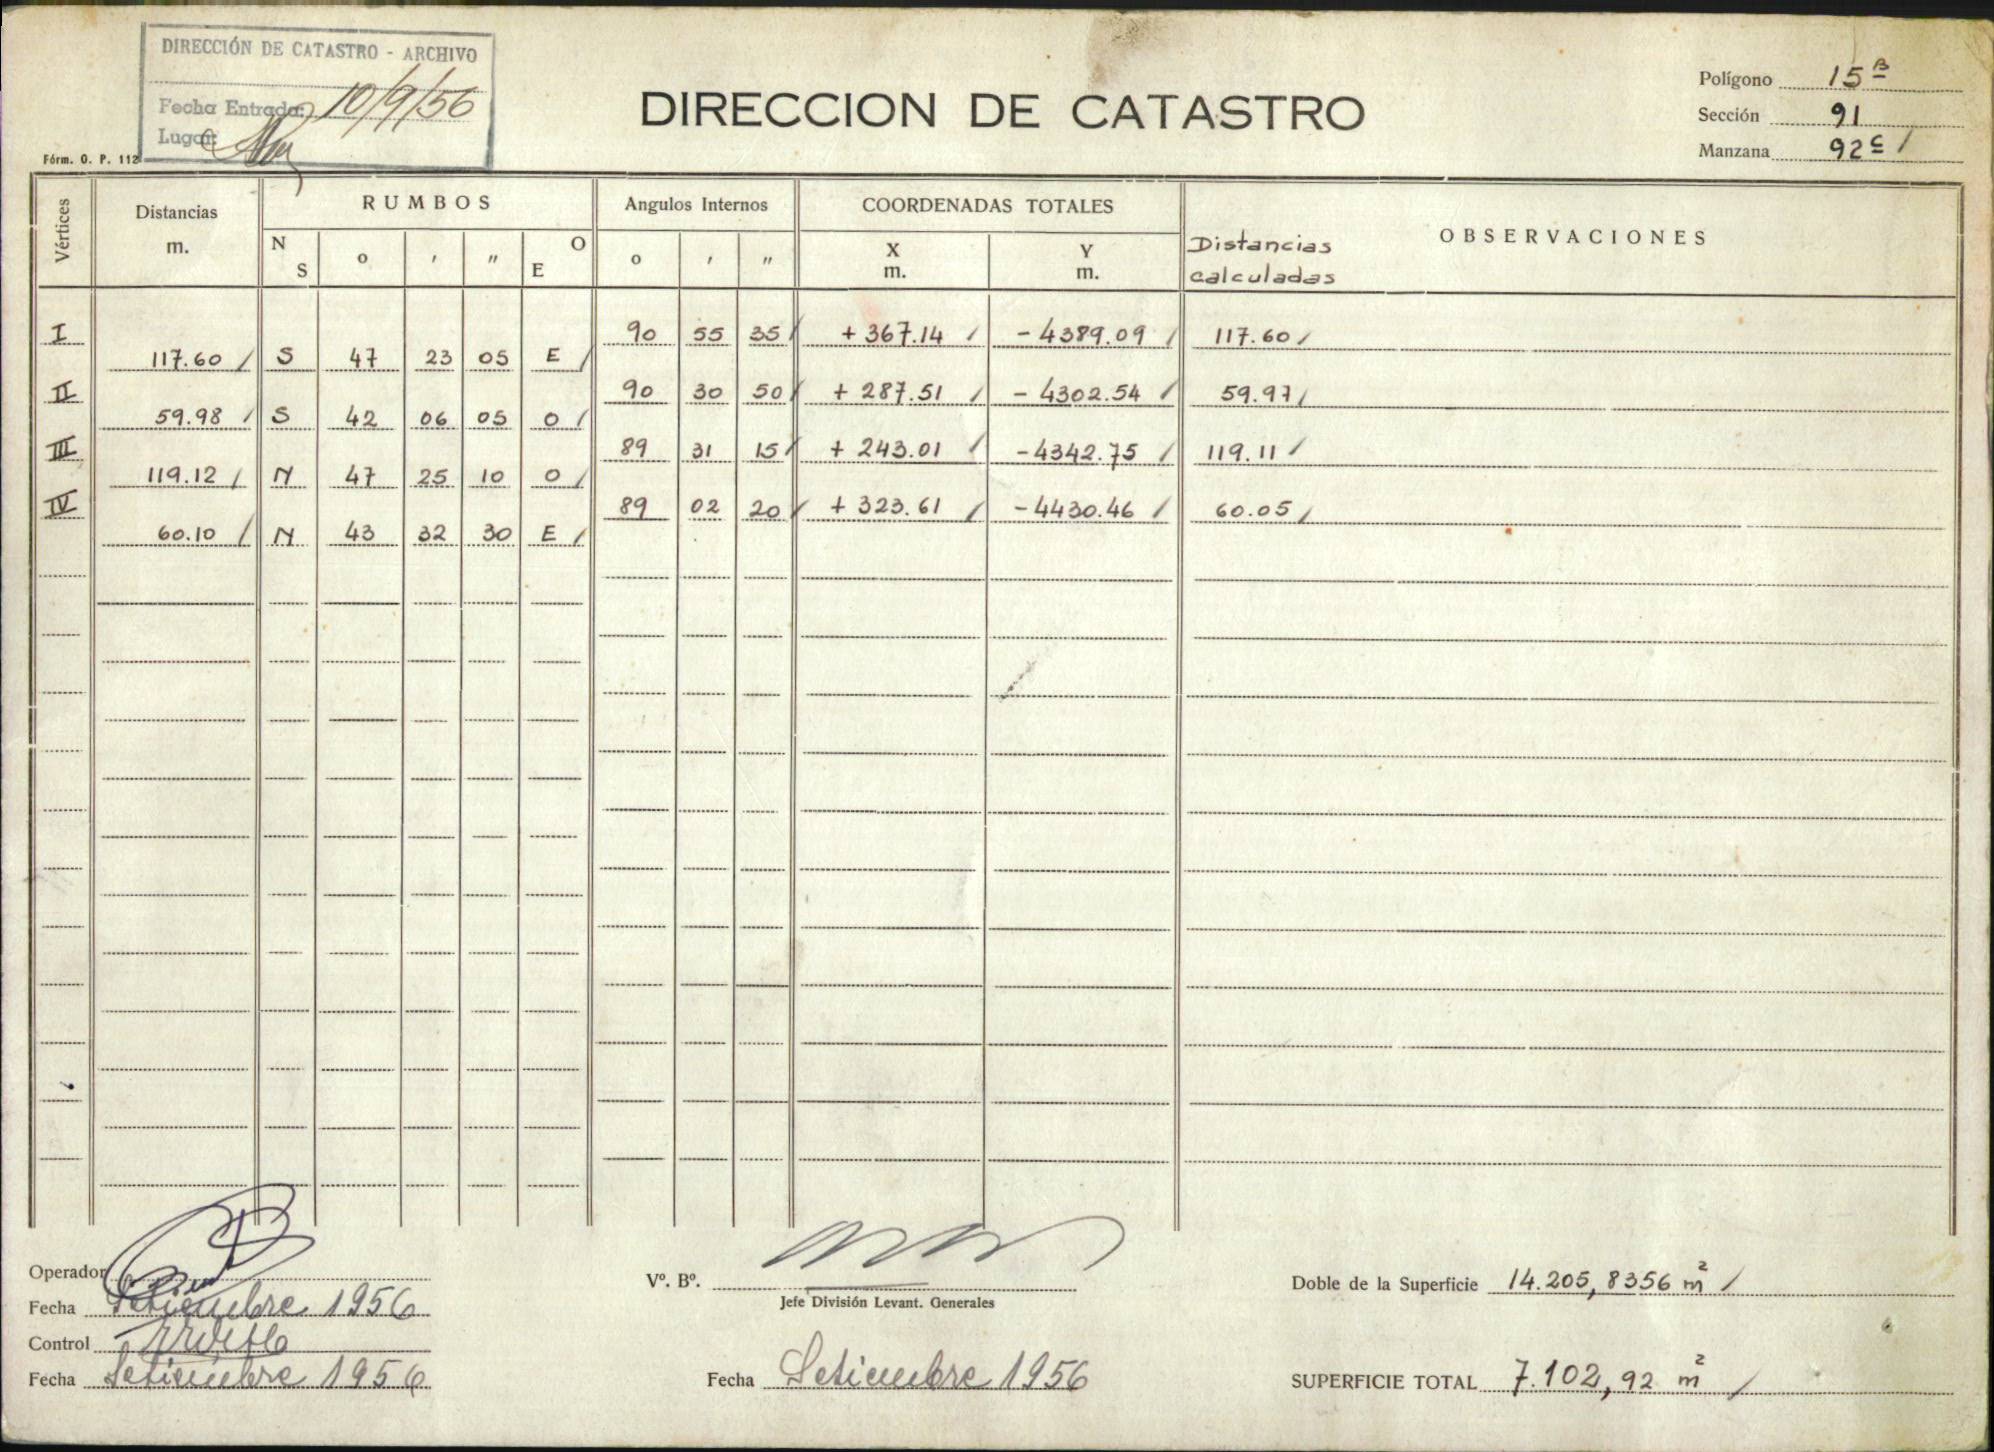 DIRECCIÓN DE CATASTRO - ARCHIVO
Fecha Entrada: 10/9/56
Lugar:
Fórm. O. P. 112
DIRECCION DE CATASTRO
Polígono 15 B
Sección 91
Manzana 92 c /
Vértices Distancias m. RUMBOS Angulos Internos COORDENADAS TOTALES OBSERVACIONES
N S o ' " O E o ' " X m. Y m. Distancias calculadas
I 90 55 35 / + 367.14 / - 4389.09 / 117.60 /
117.60 / S 47 23 05 E /
II 90 30 50 / + 287.51 / - 4302.54 / 59.97 /
59.98 / S 42 06 05 O /
III 89 31 15 / + 243.01 / - 4342.75 / 119.11 /
119.12 / N 47 25 10 O /
IV 89 02 20 / + 323.61 / - 4430.46 / 60.05 /
60.10 / N 43 32 30 E /
Operador
Fecha Setiembre 1956
Control
Fecha Setiembre 1956
Vº. Bº.
Jefe División Levant. Generales
Fecha Setiembre 1956
Doble de la Superficie 14.205,8356 m² /
SUPERFICIE TOTAL 7.102,92 m² /